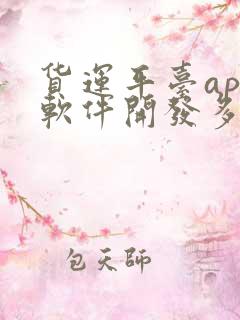 货運平臺ap
軟件開發多
包天師